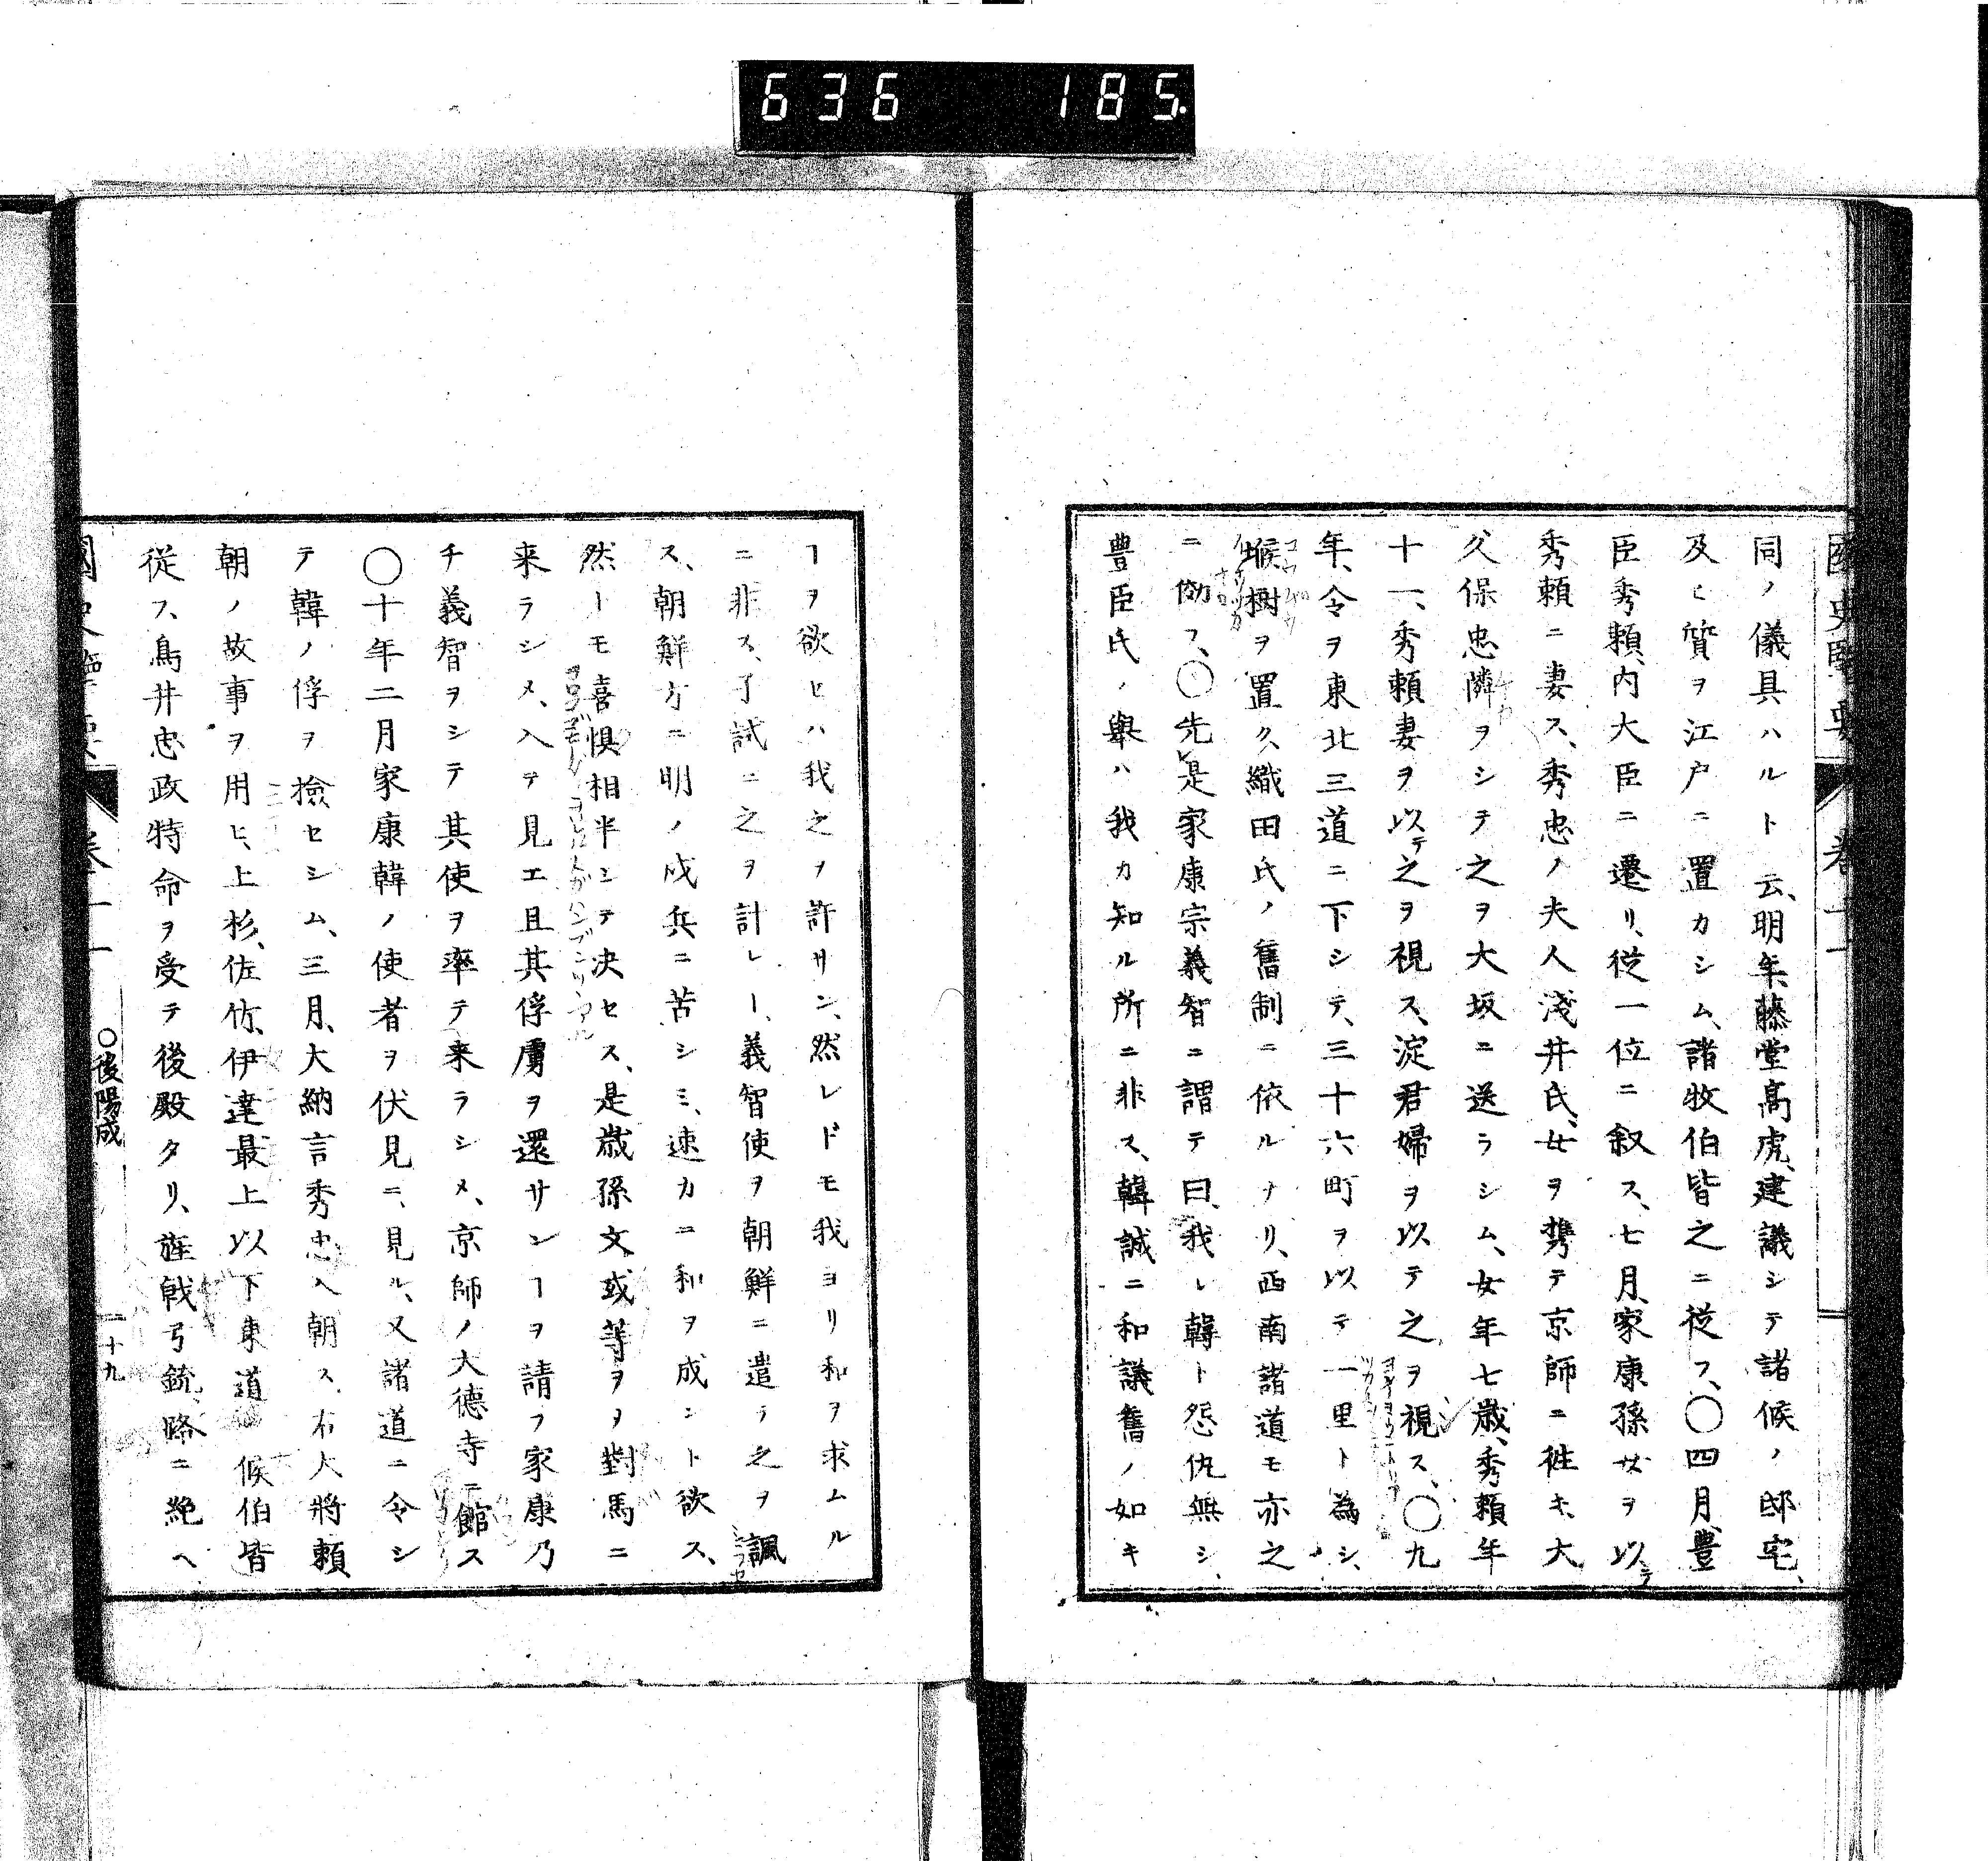 636 185.
國史擥要 卷十一
同ノ儀具ハルト云、明年、藤堂高虎、建議シテ諸侯ノ邸宅、
及ヒ質ヲ江戸ニ置カシム、諸牧伯皆之ニ從フ、〇四月、豊
臣秀頼、内大臣ニ遷リ、從一位ニ叙ス、七月、家康孫女ヲ以テ
秀頼ニ妻ス、秀忠ノ夫人淺井氏、女ヲ携テ京師ニ徃キ、大
久保忠隣ヲシテ之ヲ大坂ニ送ラシム、女年七歳、秀頼年
十一、秀頼妻ヲ以テ之ヲ視ス、淀君婦ヲ以テ之ヲ視ス、〇九
年、令ヲ東北三道ニ下シテ、三十六町ヲ以テ一里ト為シ、
堠樹ヲ置ク、織田氏ノ舊制ニ依ルナリ、西南諸道モ亦之
ニ傚フ、〇先是家康宗義智ニ謂テ曰、我レ韓ト怨仇無シ、
豊臣氏ノ舉ハ我カ知ル所ニ非ス、韓誠ニ和議舊ノ如キ
ヿヲ欲セハ我之ヲ許サン、然レドモ我ヨリ和ヲ求ムル
ニ非ス、了試ニ之ヲ計レー、義智使ヲ朝鮮ニ遣ラ之ヲ諷
ス、朝鮮方ニ明ノ戍兵ニ苦シミ、速カニ和ヲ成ント欲ス、
然トモ喜惧相半シテ决セス、是歳孫文彧等ヲヲ對馬ニ
来ラシメ、入テ見エ且其俘虜ヲ還サンヿヲ請フ家康乃
チ義智ヲシテ其使ヲ率テ来ラシメ、京師ノ大德寺ニ館ス
〇十年二月家康韓ノ使者ヲ伏見ニ、見ル、又諸道ニ令シ
テ韓ノ俘ヲ撿セシム、三月、大納言秀忠入朝ス、右大將頼
朝ノ故事ヲ用ヒ、上杉、佐竹、伊達最上以下東道 候伯皆
從フ、鳥井忠政特命ヲ受テ後殿タリ、旌戟弓銃、路ニ絶ヘ
國史擥要 卷十一 〇後陽成 二十九